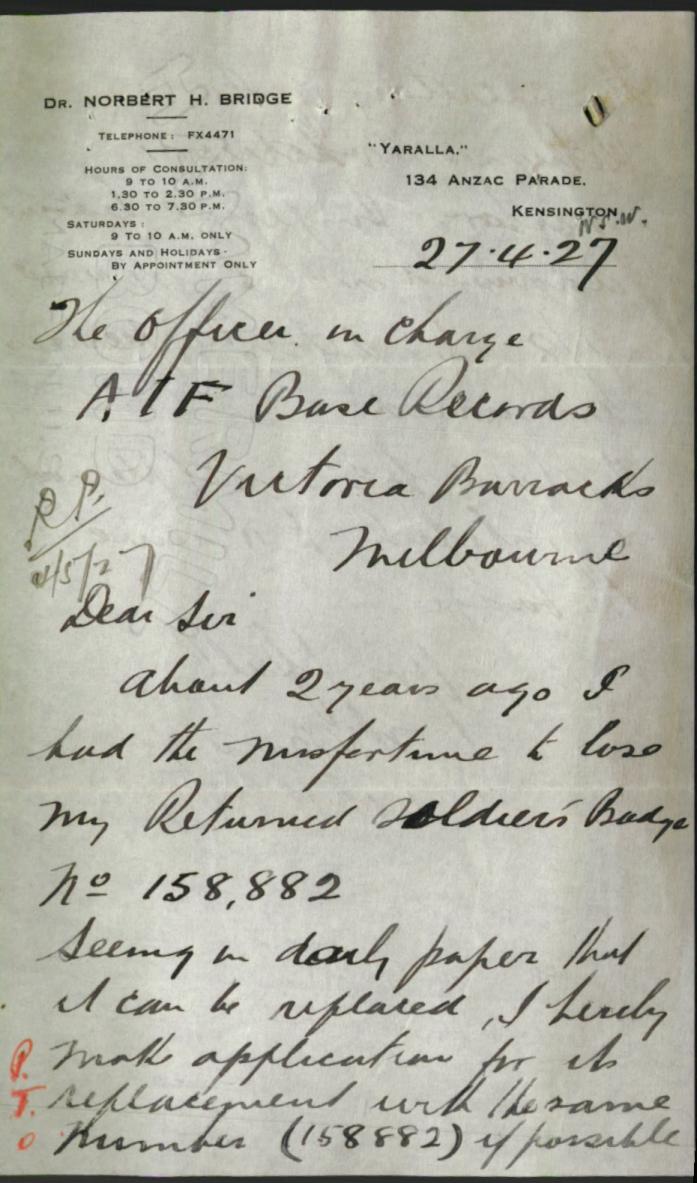 DR. NORBERT H. BRIDGE
TELEPHONE: FX4471
HOURS OF CONSULTATION:
9 TO 10 A.M.
1.30 TO 2.30 P.M.
6.30 TO 7.30 P.M.
SATURDAYS:
9 TO 10 A.M. ONLY
SUNDAYS AND HOLIDAYS-
BY APPOINTMENT ONLY
"YARALLA."
134 ANZAC PARADE,
KENSINGTON
N.S.W.
27.4.27
The Officer in charge
A.I.F Base Records
Victoria Barracks
Melbourne
R.P.
4/5/27
Dear Sir
About 2 years ago I
had the misfortune to lose
my Returned Soldier's Badge
No 158,882
Seeing in daily paper that
it can be replaced, I hereby
make application for its
replacement with the same
Number (158882) if possible
P.
T.
O